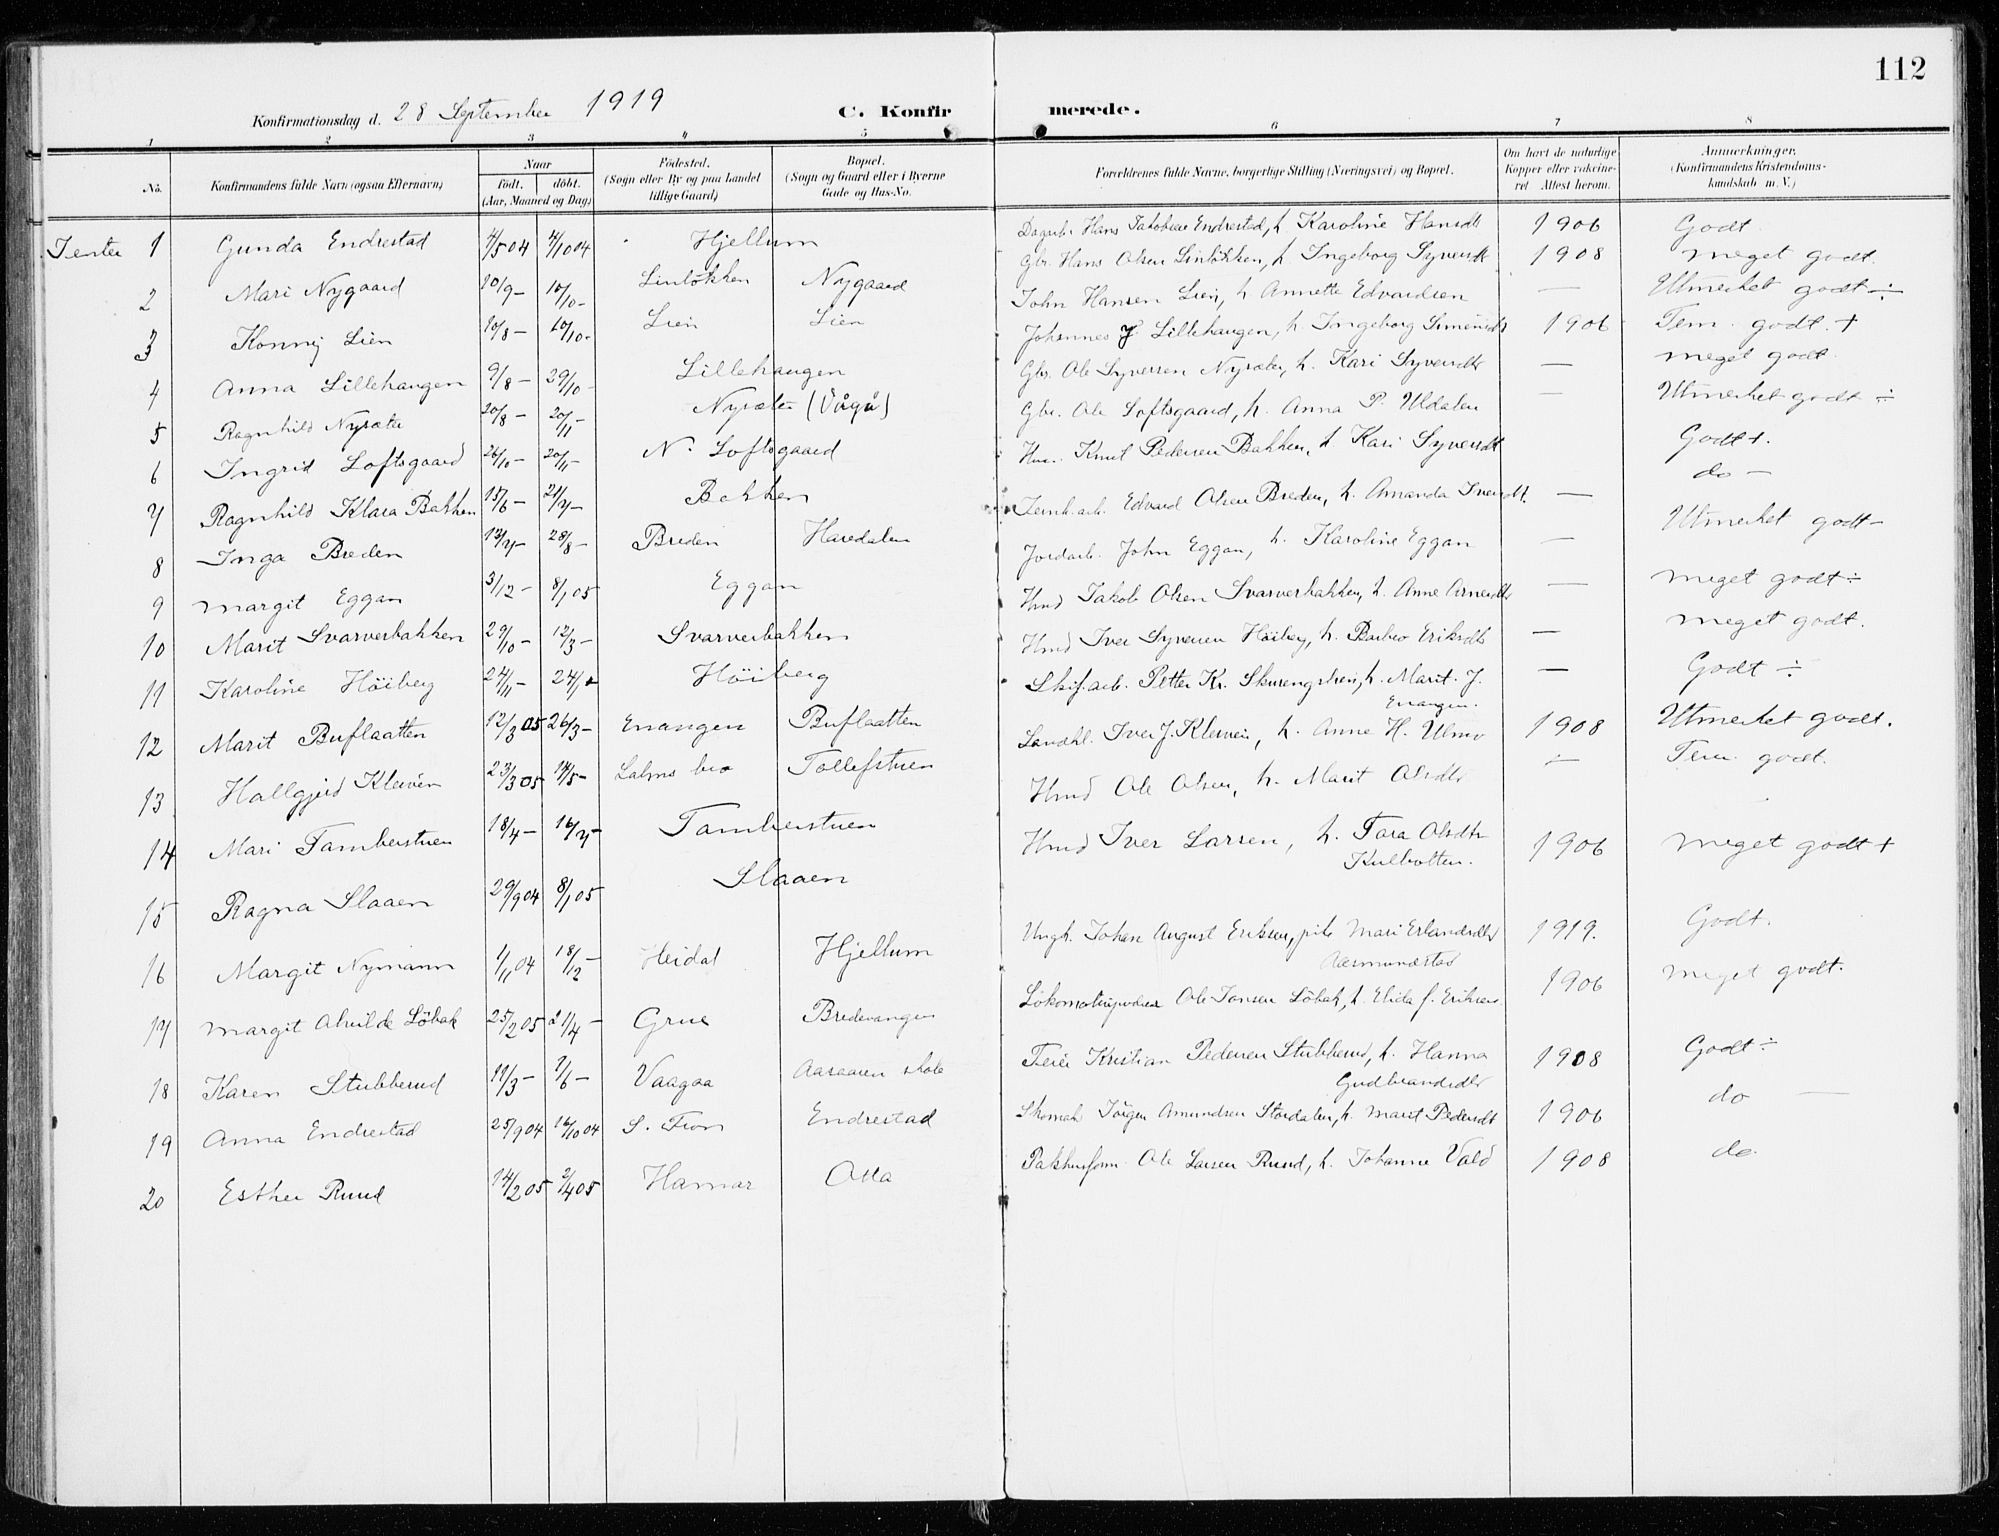 112
Konfirmationsdag d. 28 September 1919
C. Konfirmerede.
1 2 3 4 5 6 7 8
No. Konfirmandens fulde Navn (ogsaa Efternavn) Naar født, døbt. (Aar, Maaned og Dag) Fødested. (Sogn eller By og paa Landet tillige Gaard) Bopæl. (Sogn og Gaard eller i Byerne Gade og Hus-No. Forældrenes fulde Navne, borgerlige Stilling (Næringsvei) og Bopæl. Om havt de naturlige Kopper eller vaccineret Attest herom. Anmerkninger. (Konfirmandens Kristendomskundskab m. V.)
Jenter 1 Gunda Endrestad 4/5 04 4/10 04 Hjellum Dagarb. Hans Jakobsen Endrestad, h. Karoline Hansdt 1906 Godt
2 Mari Nygaard 20/9 – 10/10 – Linløkken Nygaard Gbr. Hans Olsen Linløkken, h. Ingeborg Syversdt 1908 Meget godt.
3 Konny Lien 10/8 – 10/10 – Lien Lien John Hansen Lien, h. Annette Edvardsen — Utmerket godt ÷
4 Anna Lillehaugen 9/8 – 29/10 – Lillehaugen Johannes J Lillehaugen, h. Ingeborg Simensdt 1906 Tem. godt. +
5 Ragnhild Nysæter 20/8 – 20/11 – Nysæter (Vågå) Gbr. Ole Syversen Nysæter, h. Kari Syversdtr — meget godt.
6 Ingrid Loftsgaard 26/10 – 20/11 – N. Loftsgaard Gbr. Ole Loftsgaard, h. Anna P. Uldalen — Utmerket godt ÷
7 Ragnhild Klara Bakken 15/6 – 24/7 – Bakken Hus. Knut Pedersen Bakken, h. Kari Syversdt Godt +.
8 Inga Breden 13/7 – 28/8 – Breden Haredalen Jernb.arb. Edvard Olsen Breden, h. Amanda Iversdt. — do –
9 Margit Eggan 3/12 – 8/1 05 Eggan Jordarb. John Eggan, h. Karoline Eggan — Utmerket godt –
10 Marit Svarverbakken 29/10 – 12/3 – Svarverbakken Hmd Jakob Olsen Svarverbakken, h. Anne Arnesdtr — Meget godt ÷
11 Karoline Høiberg 24/11 – 24/1 Høiberg Hmd Iver Syversen Høiberg, h. Barbro Eriksdtr — Meget godt.
12 Marit Buflaatten 12/3 05 26/3 – Enangen Buflaatten Skif.arb. Petter Kr. Skurengshen, h. Marit J. Enangen. — Godt ÷
13 Hallgjerd Kleivén 23/3 05 14/5 – Lalms bro Tollefstuen Landhl. Iver J. Kleiven, h. Anne H. Ulmo 1908 Utmerket godt.
14 Mari Tamberstuen 18/4 – 16/7 – Tamberstuen Hmd Ole Olsen, h. Marit Olsdtr – Tem. godt.
15 Ragna Slaaen 29/9 04 8/1 05 Slaaen Hmd Iver Larsen, h. Tora Olsdtr Kulbotten. 1906 Meget godt +
16 Margit Nymann 1/1 04 18/12 – Heidal Hjellum Ungk. Johan August Eriksen, pike Mari Erlandsdtr Aasmundstad 1919. Godt.
17 Margit Alvilde Løbak 25/2 05 21/4 – Grue Bredevangen Lokomotivpudser Ole Jansen Løbak, h. Elida f. Eriksen 1906 Meget godt.
18 Karen Stubberud 19/3 – 7/6 – Vaagaa Aasaaren skole Feier Kristian Pedersen Stubberud, h. Hanna Gudbrandsdtr 1908 Godt ÷
19 Anna Endrestad 25/9 04 16/10 04 S. Fron Endrestad Skomak Jørgen Amundsen Stordalen, h. Marit Pedersdt 1906 do —
20 Esther Ruud 14/2 05 2/4 05 Hamar Otta Pakhusform. Ole Larsen Ruud, h. Johanne Vold 1908 do.